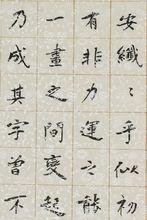 安纖纖乎似初
有非力運之能
一畫之間變起
乃成其字曾不